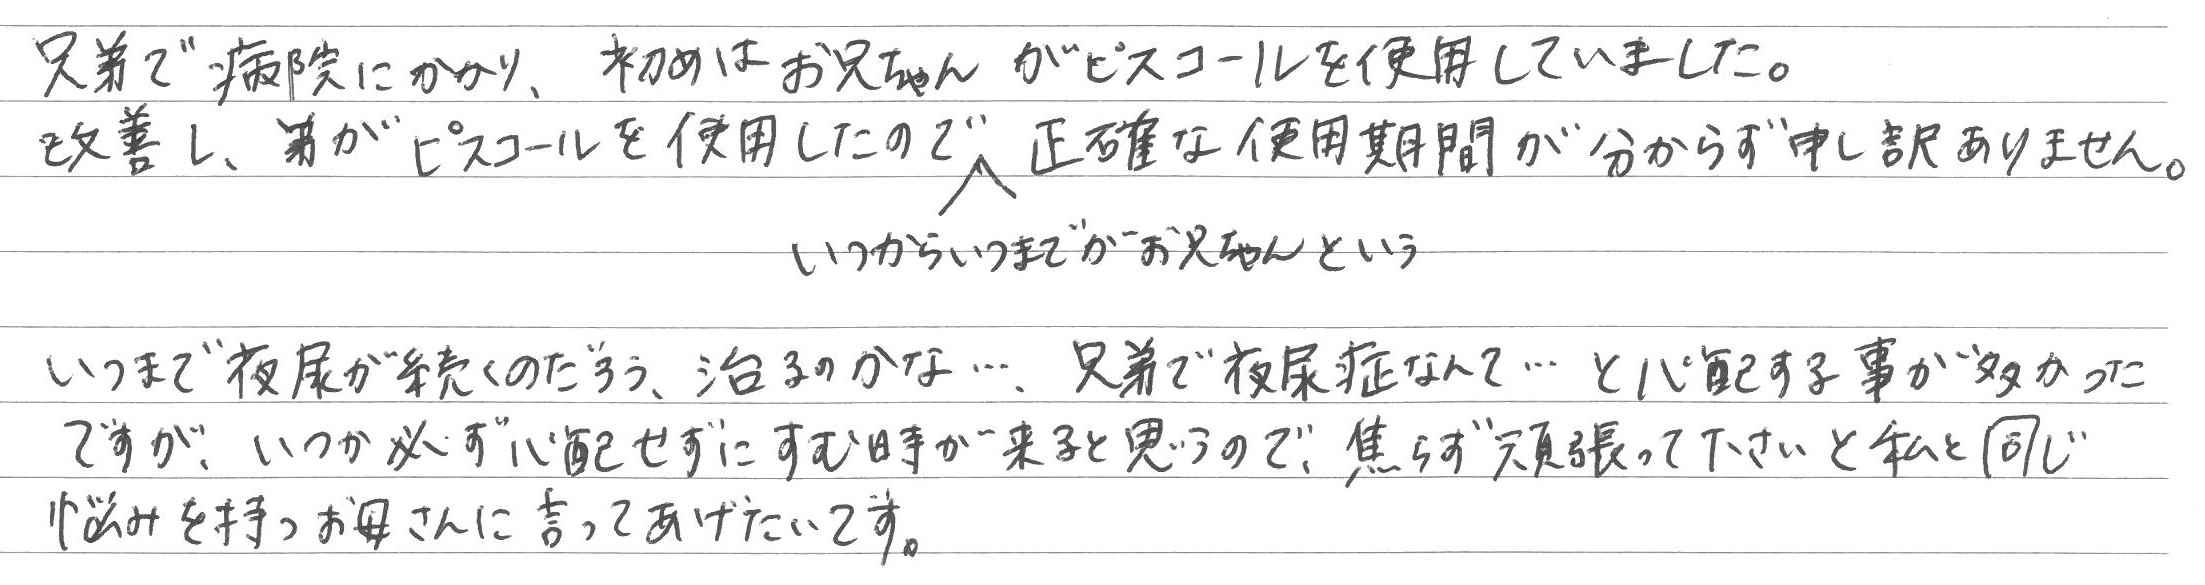 兄弟で病院にかかり、初めはお兄ちゃんがピスコールを使用していました。
改善し、弟がピスコールを使用したので正確な使用期間が分からず申し訳ありません。
いつからいつまでがお兄ちゃんという
いつまで夜尿が続くのだろう、治るのかな…、兄弟で夜尿症なんて…と心配する事が多かった
ですが、いつか必ず心配せずにすむ時が来ると思うので、焦らず頑張って下さいと私と同じ
悩みを持つお母さんに言ってあげたいです。